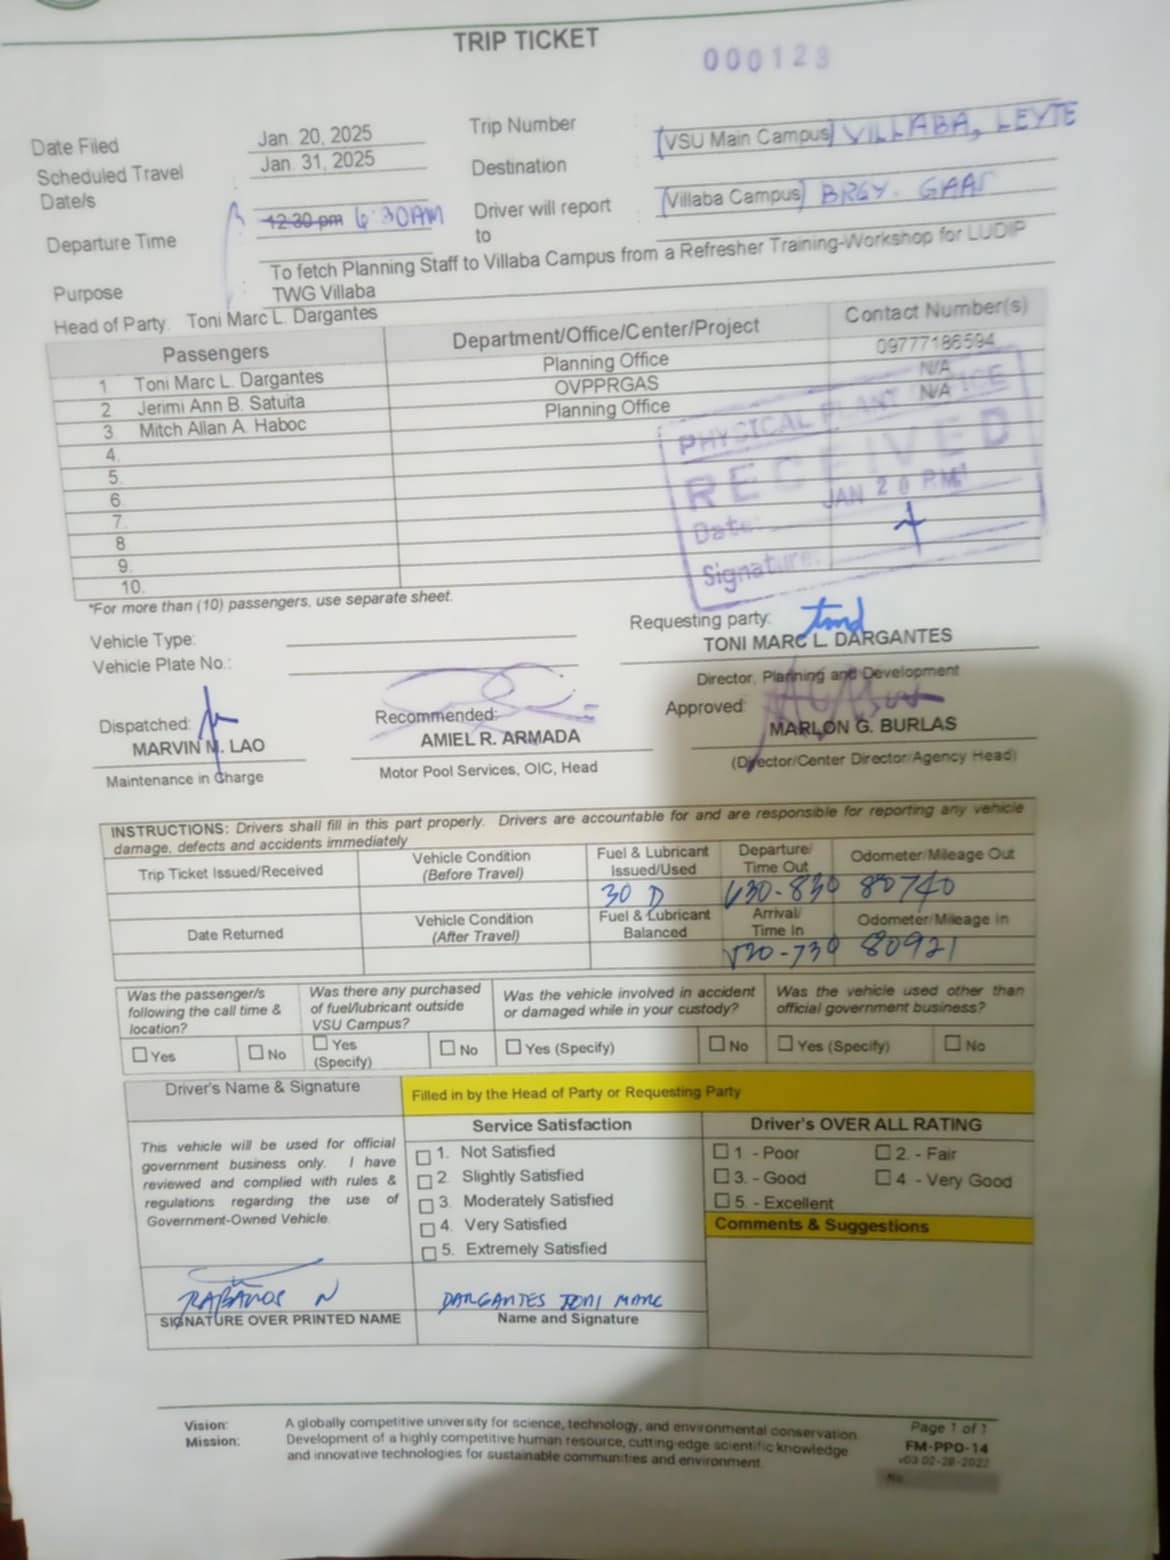 TRIP TICKET
000123
Date Filed Jan. 20, 2025 Trip Number
Scheduled Travel Date/s : Jan. 31, 2025 Destination : (VSU Main Campus) VILLABA, LEYTE
Departure Time : 12:30 pm 6:30AM Driver will report to : (Villaba Campus) BRGY. GAAS
Purpose : To fetch Planning Staff to Villaba Campus from a Refresher Training-Workshop for LUDIP
TWG Villaba
Head of Party: Toni Marc L. Dargantes
Passengers Department/Office/Center/Project Contact Number(s)
1 Toni Marc L. Dargantes Planning Office 09777186594
2 Jerimi Ann B. Satuita OVPPRGAS N/A
3 Mitch Allan A. Haboc Planning Office N/A
4.
5.
6
7.
8
9.
10.
PHYSICAL PLANT OFFICE
RECEIVED
Date: JAN 20 PM
Signature:
*For more than (10) passengers, use separate sheet.
Vehicle Type:
Vehicle Plate No.:
Requesting party: tmd
TONI MARC L. DARGANTES
Director, Planning and Development
Dispatched: Recommended: Approved:
MARVIN M. LAO AMIEL R. ARMADA MARLON G. BURLAS
Maintenance in Charge Motor Pool Services, OIC, Head (Director/Center Director/Agency Head)
INSTRUCTIONS: Drivers shall fill in this part properly. Drivers are accountable for and are responsible for reporting any vehicle
damage, defects and accidents immediately
Trip Ticket Issued/Received Vehicle Condition (Before Travel) Fuel & Lubricant Issued/Used Departure/ Time Out Odometer/Mileage Out
30 D 630-830 80740
Date Returned Vehicle Condition (After Travel) Fuel & Lubricant Balanced Arrival/ Time In Odometer/Mileage In
520-730 80921
Was the passenger/s following the call time & location? Was there any purchased of fuel/lubricant outside VSU Campus? Was the vehicle involved in accident or damaged while in your custody? Was the vehicle used other than official government business?
Yes No Yes (Specify) No Yes (Specify) No Yes (Specify) No
Driver's Name & Signature Filled in by the Head of Party or Requesting Party
Service Satisfaction Driver's OVER ALL RATING
This vehicle will be used for official
government business only. I have
reviewed and complied with rules &
regulations regarding the use of
Government-Owned Vehicle.
1. Not Satisfied
2. Slightly Satisfied
3. Moderately Satisfied
4. Very Satisfied
5. Extremely Satisfied
1 - Poor 2. - Fair
3. - Good 4 - Very Good
5. - Excellent
Comments & Suggestions
RABANOS N DARGANTES TONI MARC
SIGNATURE OVER PRINTED NAME Name and Signature
Vision: A globally competitive university for science, technology, and environmental conservation.
Mission: Development of a highly competitive human resource, cutting-edge scientific knowledge
and innovative technologies for sustainable communities and environment.
Page 1 of 1
FM-PPO-14
v03 02-28-2022
No.